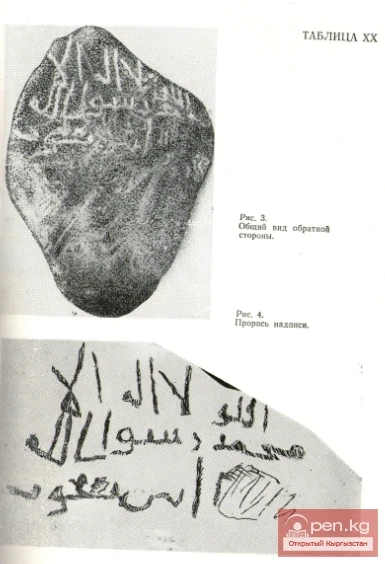 ТАБЛИЦА XX
لا اله الا
الله
رسول الله
Рис. 3.
Общий вид обратной
стороны.
Рис. 4.
Прорись надписи.
لا اله الا
الله
محمد رسول الله
Open.kg
Открытый Кыргызстан